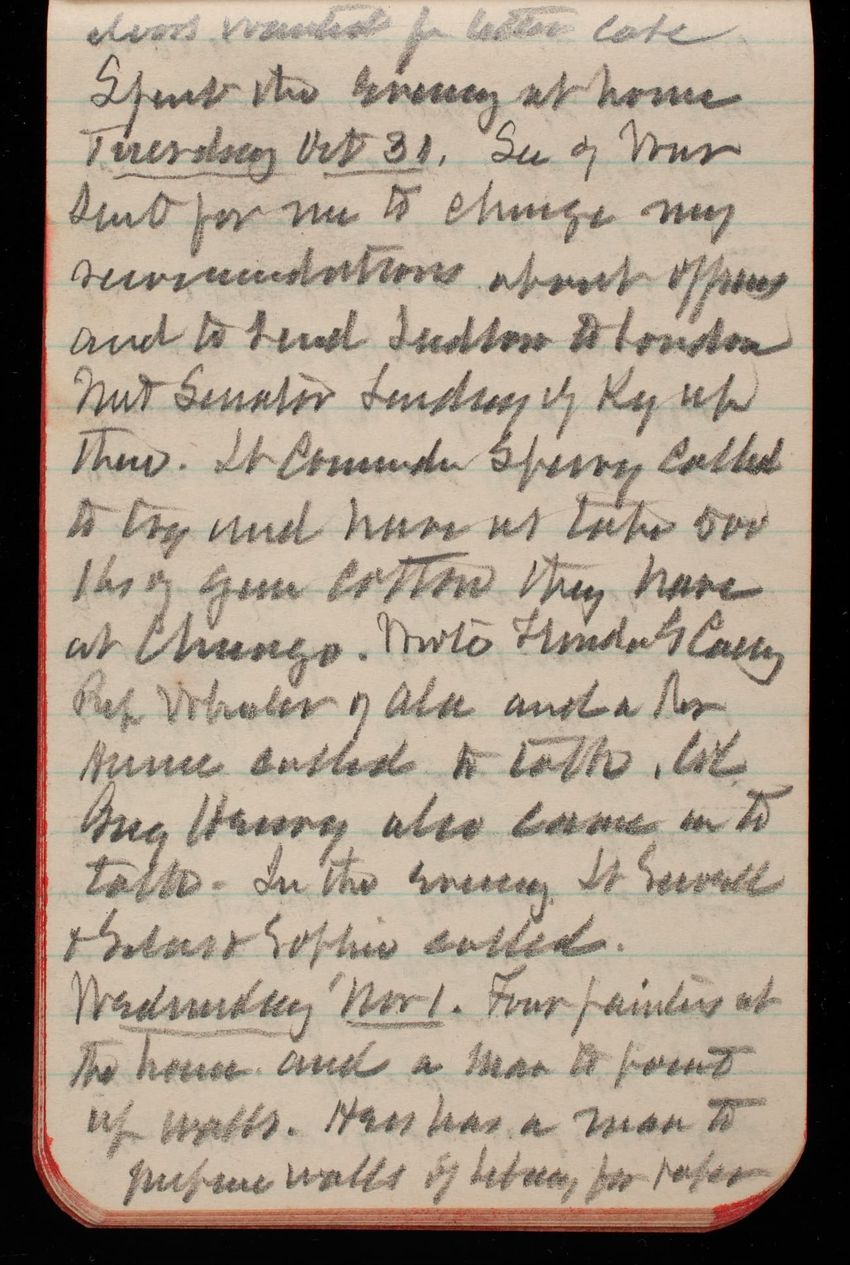 wanted for letter
Spent the evening at home
Tuesday Oct 31. Sec of War
sent for me to change my
recommendations about officers
and to send Ludlow to London
Met Senator Lindsay of Ky up
there. Lt Commander Sperry called
to try and have us take 500
lbs of gun cotton they have
at Chicago. Wrote Casey
Rep Wheeler of Ala and a Rev
called to talk. Col
Guy Henry also came in to
talk. In the evening Lt Sewell
& Sophie called.
Wednesday Nov 1. Four painters at
the house and a man to point
up walls. has a man to
prepare walls of for